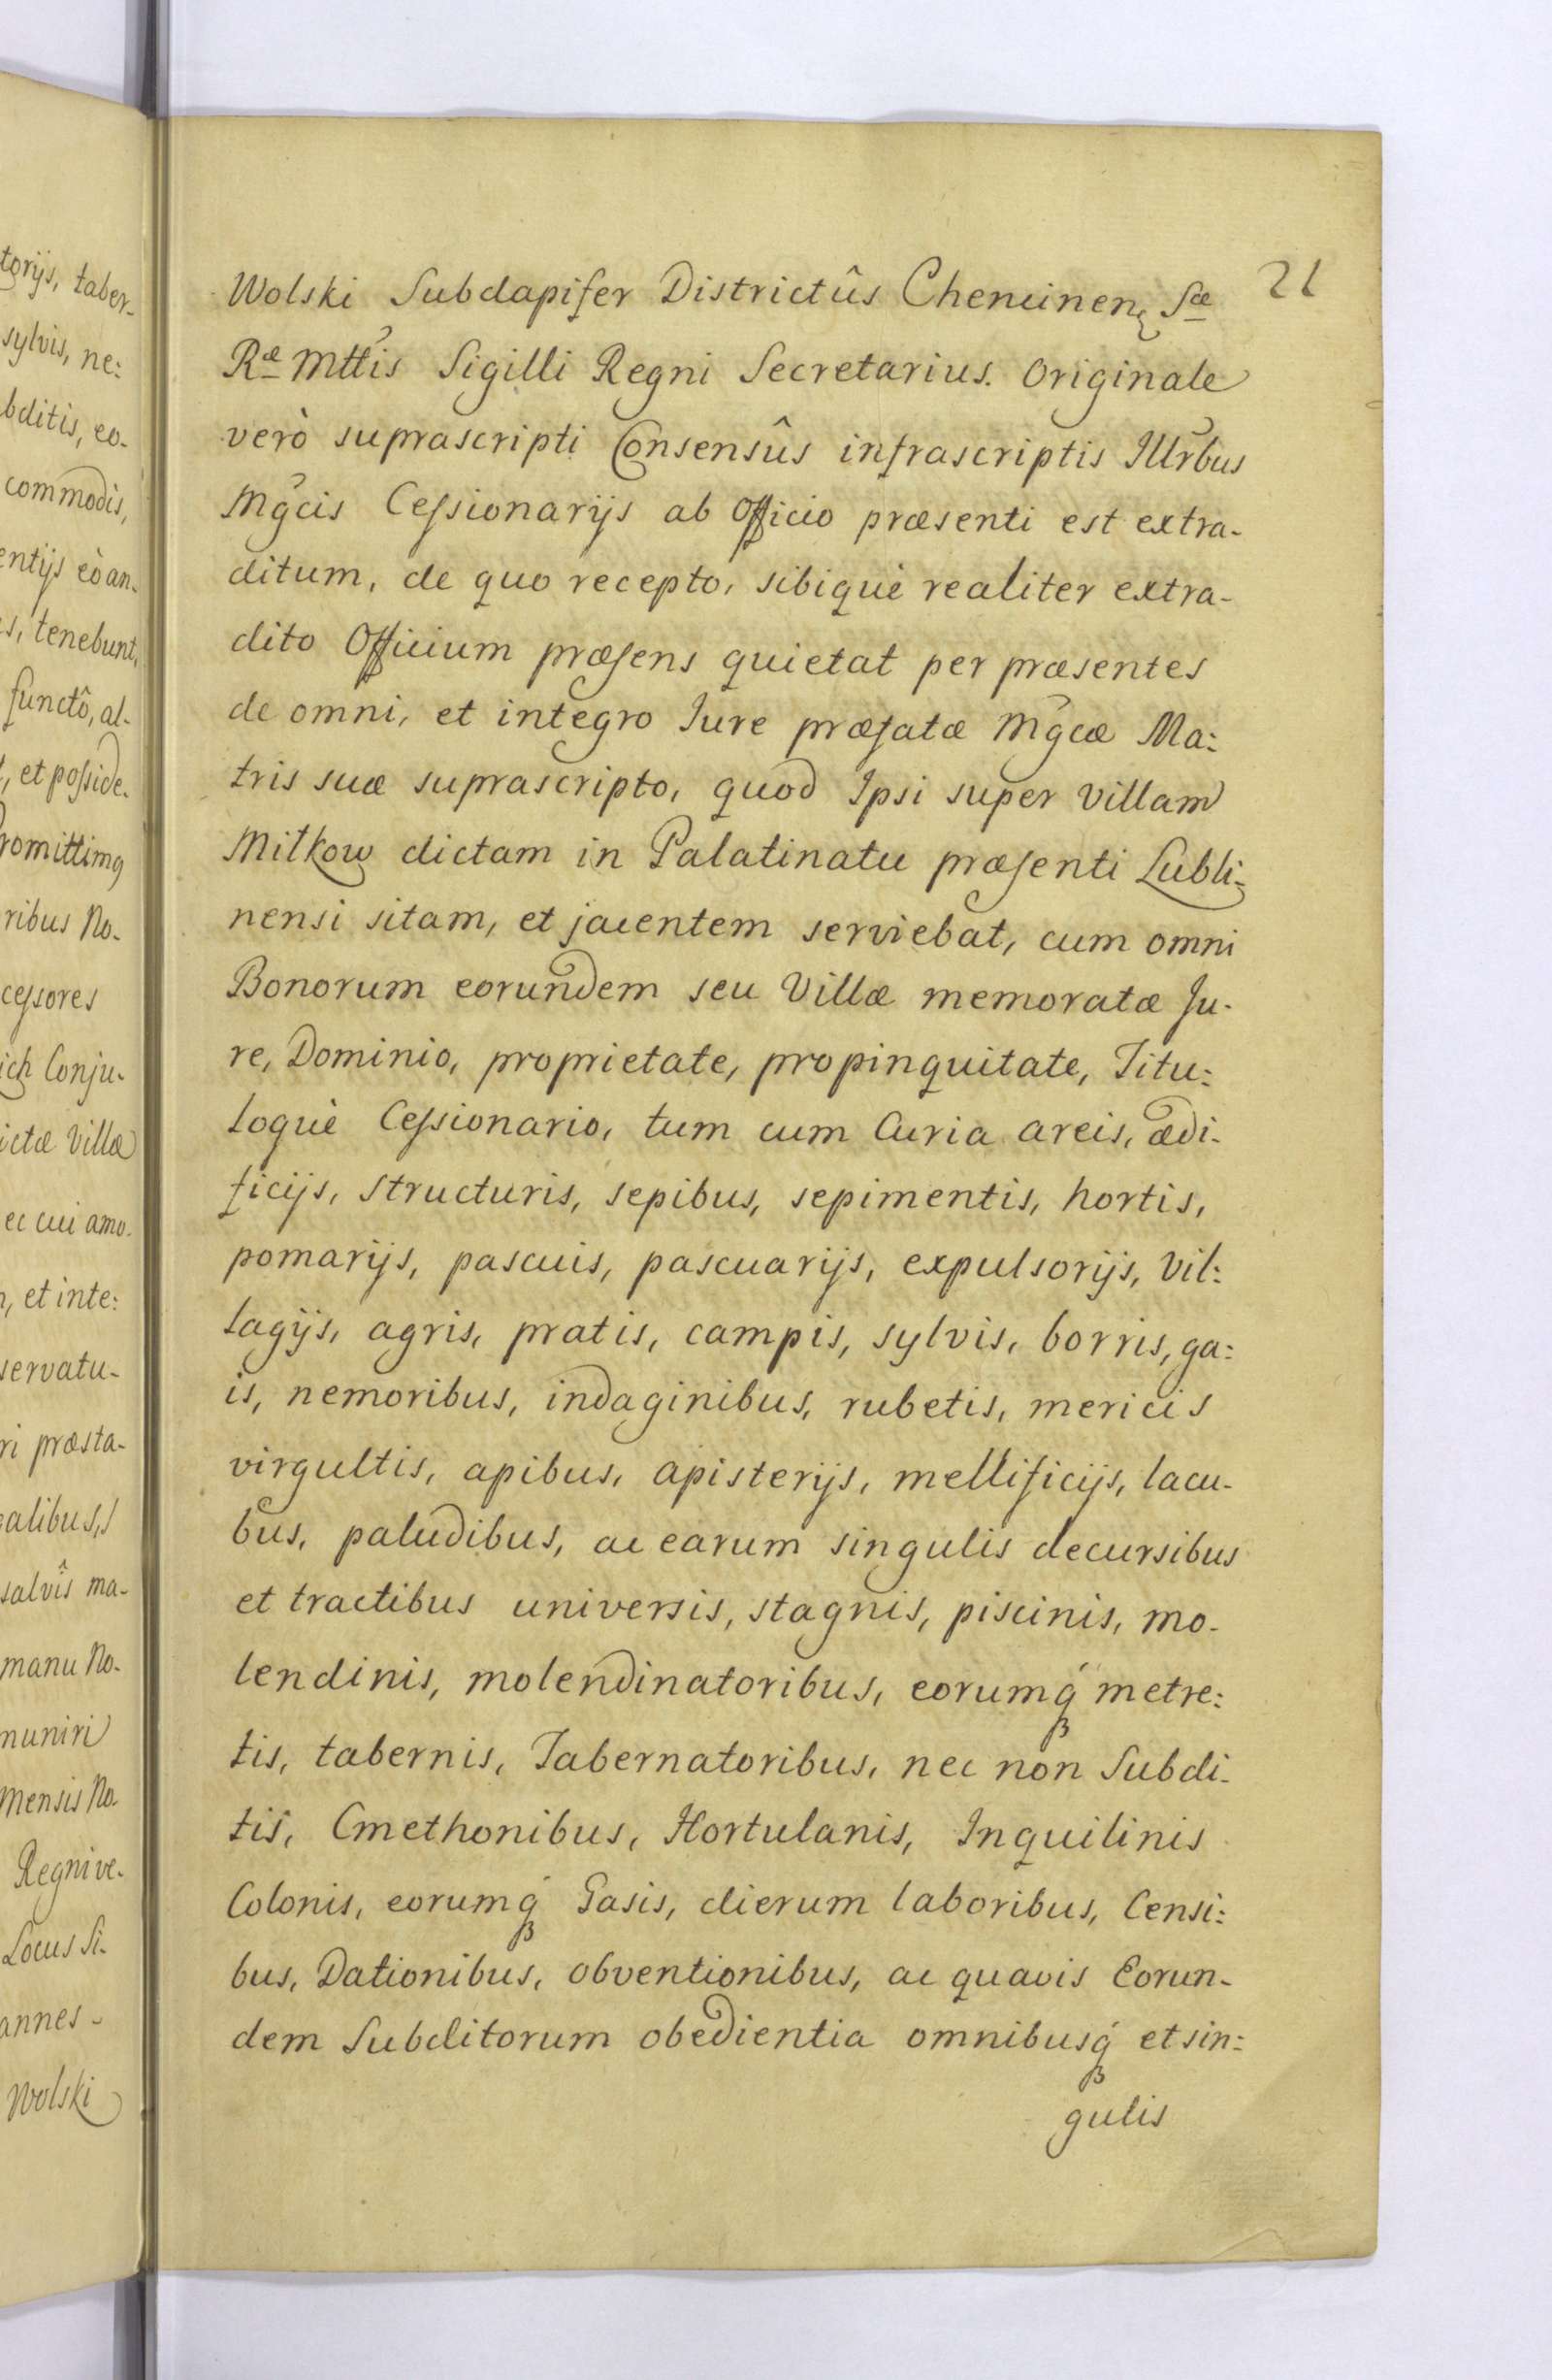 torijs, taber-
sylvis, ne:
bditis, eo-
commodis,
entijs eò an-
s, tenebunt,
functô, al-
, et posside-
romittimq
ribus No-
cessores
ich Conju-
ictæ Villæ
ec cui amo-
, et inte:
servatu-
ri præsta-
alibus,
salvîs ma-
manu No-
muniri
Mensis No-
Regni ve-
Locus Si-
annes -
Wolski
21
Wolski Subdapifer Districtûs Chencinen, Sæ
Ræ Mttis Sigilli Regni Secretarius. Originale
verò suprascripti Consensûs infrascriptis Illrbus
Mgcis Cessionarijs ab Officio præsenti est extra-
ditum, de quo recepto, sibiquè realiter extra-
dito Officium præsens quietat per præsentes
de omni, et integro Iure præfatæ Mgcæ Ma:
tris suæ suprascripto, quod Ipsi super Villam
Miłkow dictam in Palatinatu præsenti Lubli:
nensi sitam, et jacentem serviebat, cum omni
Bonorum eorundem seu Villæ memoratæ Ju-
re, Dominio, proprietate, propinquitate, Titu:
loquè Cessionario, tum cum Curia areis, ædi-
ficijs, structuris, sepibus, sepimentis, hortis,
pomarijs, pascuis, pascuarijs, expulsorijs, Vil:
lagijs, agris, pratis, campis, sylvis, borris, ga:
is, nemoribus, indaginibus, rubetis, mericis
virgultis, apibus, apisterijs, mellificijs, lacu-
bus, paludibus, ac earum singulis decursibus
et tractibus universis, stagnis, piscinis, mo-
lendinis, molendinatoribus, eorumq́ metre:
tis, tabernis, Tabernatoribus, nec non Subdi-
tis, Cmethonibus, Hortulanis, Inquilinis
Colonis, eorumq́ Gasis, dierum laboribus, Censi:
bus, Dationibus, obventionibus, ac quavis Eorun-
dem Subditorum obedientia omnibusq́ et sin:
gulis